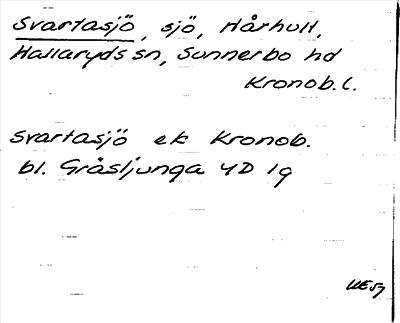 Svartasjö, sjö, Hårhult,
Hallaryds sn, Sunnerbo hd
Kronob. l.
Svartasjö ek Kronob.
bl. Gråsljunga 4D 1g